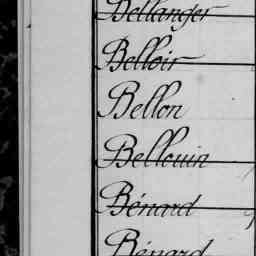 Bellanger
Belloir
Bellon
Bellouin
Bénard
Bénard